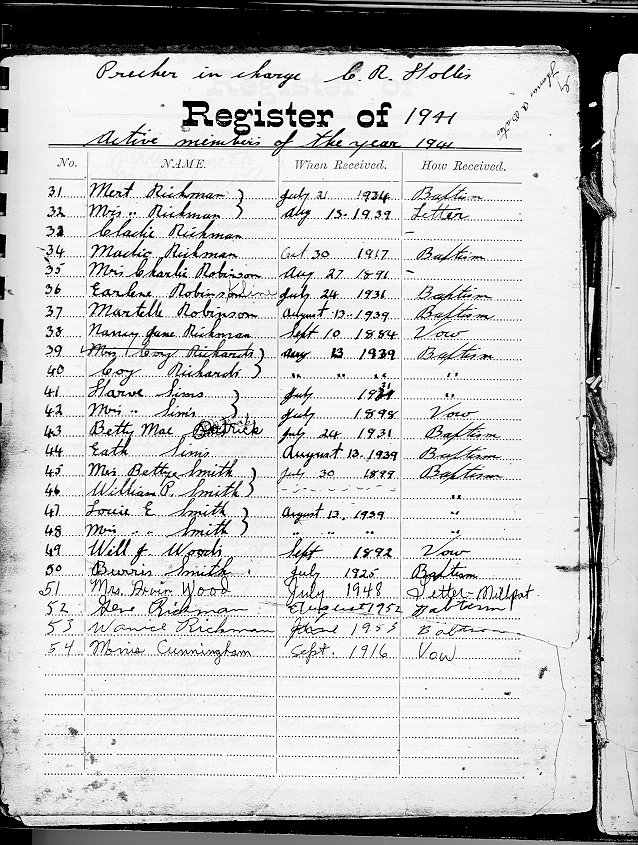 Precher in charge C. R. Hollis
Register of 1941
Active members of the year 1941
No. NAME. When Received. How Received.
31 Mert Richman } July 21 1934 Baptism
32 Mrs " Richman } Aug 13 - 1939 Letter
33 Cladie Richman -
34 Madie Richman Oct 30 1917 Baptism
35 Mrs Charlie Robinson Aug 27 1891 -
36 Earlene Robinson Kline July 24 1931 Baptism
37 Martelle Robinson August 13 - 1939 Baptism
38 Nancy Jane Richman Sept 10 1884 Vow
39 Mrs Coy Richards } Aug 13 1939 Baptism
40 Coy Richards } " " " "
41 Harve Sims } July "
42 Mrs " Sims } July 1898 Vow
43 Betty Mae Patrick July 24 1931 Baptism
44 Eath Sims August 13. 1939 Baptism
45 Mrs Bettye Smith } July 30 1899 Baptism
46 William P. Smith } "
47 Louie E Smith } August 13. 1939 "
48 Mrs " " Smith } " " " "
49 Will J Woods Sept 1892 Vow
50 Burris Smith July 1925 Baptism
51 Mrs. Irvin Wood July 1948 Letter Millpat
52 Gene Richman August 1952 Babtism
53 Richman 1953
54 Cunningham Sept. 1916 Vow